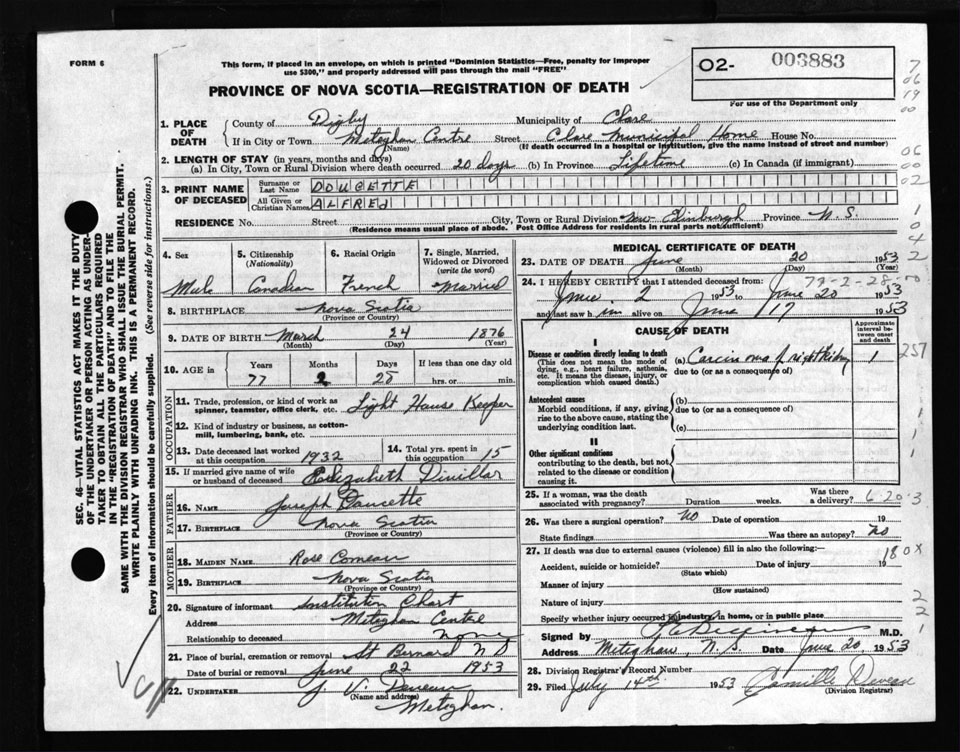 FORM 6
This form, if placed in an envelope, on which is printed "Dominion Statistics—Free, penalty for improper
use $300," and properly addressed will pass through the mail "FREE"
PROVINCE OF NOVA SCOTIA—REGISTRATION OF DEATH
O2- 003883
For use of the Department only
1. PLACE OF DEATH
County of Digby Municipality of Clare
If in City or Town Meteghan Centre Street Clare Municipal Home House No.
(Name) (If death occurred in a hospital or institution, give the name instead of street and number)
2. LENGTH OF STAY (in years, months and days)
(a) In City, Town or Rural Division where death occurred 20 days (b) In Province Lifetime (c) In Canada (if immigrant)
3. PRINT NAME OF DECEASED
Surname or Last Name DOUCETTE
All Given or Christian Names ALFRED
RESIDENCE No. Street City, Town or Rural Division New Edinburgh Province N. S.
(Residence means usual place of abode. Post Office Address for residents in rural parts not sufficient)
4. Sex Male
5. Citizenship (Nationality) Canadian
6. Racial Origin French
7. Single, Married, Widowed or Divorced (write the word) Married
8. BIRTHPLACE Nova Scotia
(Province or Country)
9. DATE OF BIRTH March 24 1876
(Month) (Day) (Year)
10. AGE in Years Months Days If less than one day old
77 2 28 hrs. or min.
OCCUPATION
11. Trade, profession, or kind of work as spinner, teamster, office clerk, etc. Light House Keeper
12. Kind of industry or business, as cotton-mill, lumbering, bank, etc.
13. Date deceased last worked at this occupation 1932
14. Total yrs. spent in this occupation 15
15. If married give name of wife or husband of deceased Elizabeth
FATHER
16. NAME Joseph Doucette
17. BIRTHPLACE Nova Scotia
(Province or Country)
MOTHER
18. MAIDEN NAME Rose Comeau
19. BIRTHPLACE Nova Scotia
(Province or Country)
20. Signature of informant Institution Chart
Address Meteghan Centre
Relationship to deceased None
21. Place of burial, cremation or removal St Bernard N S
Date of burial or removal June 22 1953
22. UNDERTAKER J. V.
(Name and address)
Meteghan.
MEDICAL CERTIFICATE OF DEATH
23. DATE OF DEATH June 20 1953
(Month) (Day) (Year)
24. I HEREBY CERTIFY that I attended deceased from:
June 2 1953 to June 20 1953
and last saw him alive on June 17 1953
CAUSE OF DEATH
Approximate interval between onset and death
I
Disease or condition directly leading to death (a) Carcinoma of right kidney 1
(This does not mean the mode of dying, e.g., heart failure, asthenia, etc. It means the disease, injury, or complication which caused death.)
due to (or as a consequence of)
Antecedent causes
Morbid conditions, if any, giving rise to the above cause, stating the underlying condition last.
(b)
due to (or as a consequence of)
(c)
II
Other significant conditions
contributing to the death, but not related to the disease or condition causing it.
25. If a woman, was the death associated with pregnancy? Duration weeks. Was there a delivery?
26. Was there a surgical operation? No Date of operation 19
State findings Was there an autopsy? No
27. If death was due to external causes (violence) fill in also the following:—
Accident, suicide or homicide? Date of injury 19
(State which)
Manner of injury
(How sustained)
Nature of injury
Specify whether injury occurred in industry, in home, or in public place
Signed by M.D.
Address Meteghan, N. S. Date June 20 1953
28. Division Registrar's Record Number
29. Filed July 14th 1953 Camille
(Division Registrar)
SEC. 46—VITAL STATISTICS ACT MAKES IT THE DUTY
OF THE UNDERTAKER OR PERSON ACTING AS UNDER-
TAKER TO OBTAIN ALL THE PARTICULARS REQUIRED
IN THE "REGISTRATION OF DEATH" AND TO FILE THE
SAME WITH THE DIVISION REGISTRAR WHO SHALL ISSUE THE BURIAL PERMIT.
WRITE PLAINLY WITH UNFADING INK. THIS IS A PERMANENT RECORD.
Every item of information should be carefully supplied. (See reverse side for instructions.)
257
6 20 3
180X